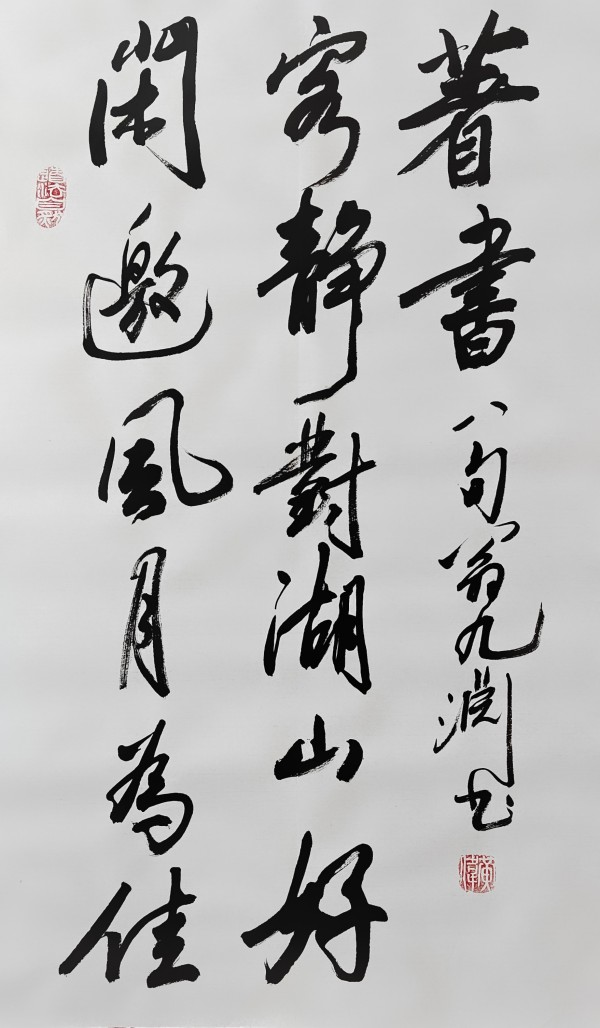 閑邀風月為佳
客靜對湖山好
著書
八旬翁九淵书